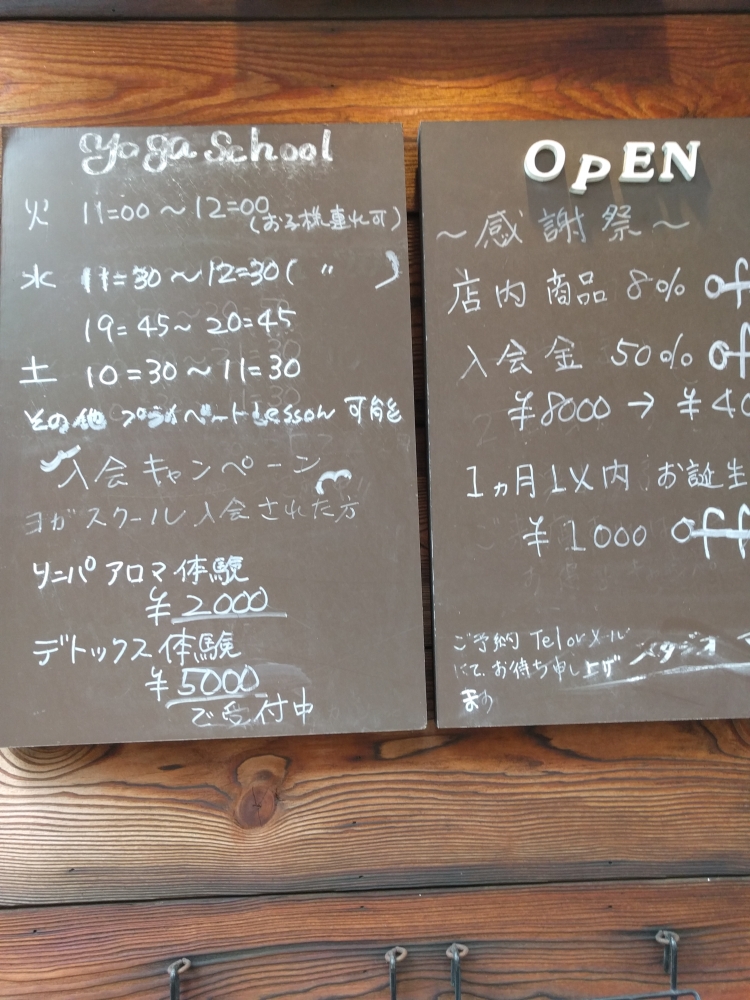 Yoga School
火 11:00～12:00 (お子様連れ可)
水 11:30～12:30 ( 〃 )
19:45～20:45
土 10:30～11:30
その他 プライベート Lesson 可能
入会キャンペーン
ヨガスクール入会された方
リンパアロマ体験
¥2000
デトックス体験
¥5000
で受付中
OPEN
～感謝祭～
店内商品 8% off
入会金 50% off
¥8000→¥40
1ヵ月以内 お誕生
¥1000 off
ご予約 Tel or メール
にて、お待ち申し上げ
ます